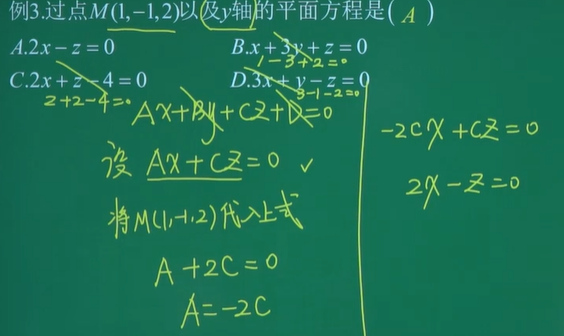 例3.过点M(1,-1,2)以及y轴的平面方程是( A )
A.2x-z=0 B.x+3y+z=0
1-3+2=0
C.2x+z-4=0 D.3x+y-z=0
2+2-4=0 3-1-2=0
Ax+By+Cz+D=0
设 Ax+Cz=0 ✓
将M(1,-1,2)代入上式
A+2C=0
A=-2C
-2Cx+Cz=0
2x-z=0